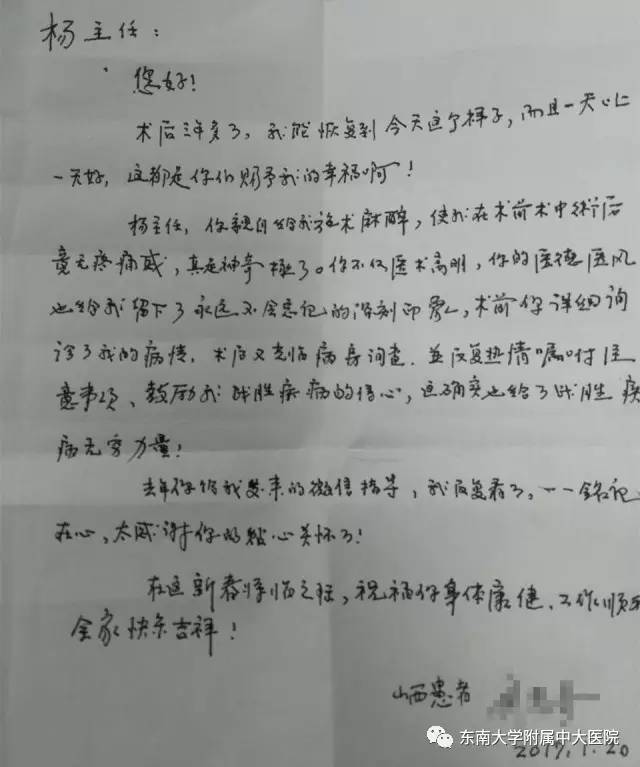 杨主任：
您好！
术后三年多了，我能恢复到今天这个样子，而且一天比
一天好，这都是你们赐予我的幸福啊！
杨主任，你亲自给我施术麻醉，使我在术前术中術后
竟无疼痛感，真是神奇極了。你不仅医术高明，你的医德医风
也给我留下了永远不会忘记的深刻印象，术前你详细询
诊了我的病情，术后又亲临病房询查．並反复热情嘱咐注
意事项、鼓励我战胜疾病的信心，这确实也给了战胜疾
病无穷力量！
去年你给我发来的微信指导，我反复看了，一一铭记
在心，太感谢你的贴心关怀了！
在这新春将临之际，祝福你身体康健、工作顺
全家快乐吉祥！
山西患者
东南大学附属中大医院
2017.1.20